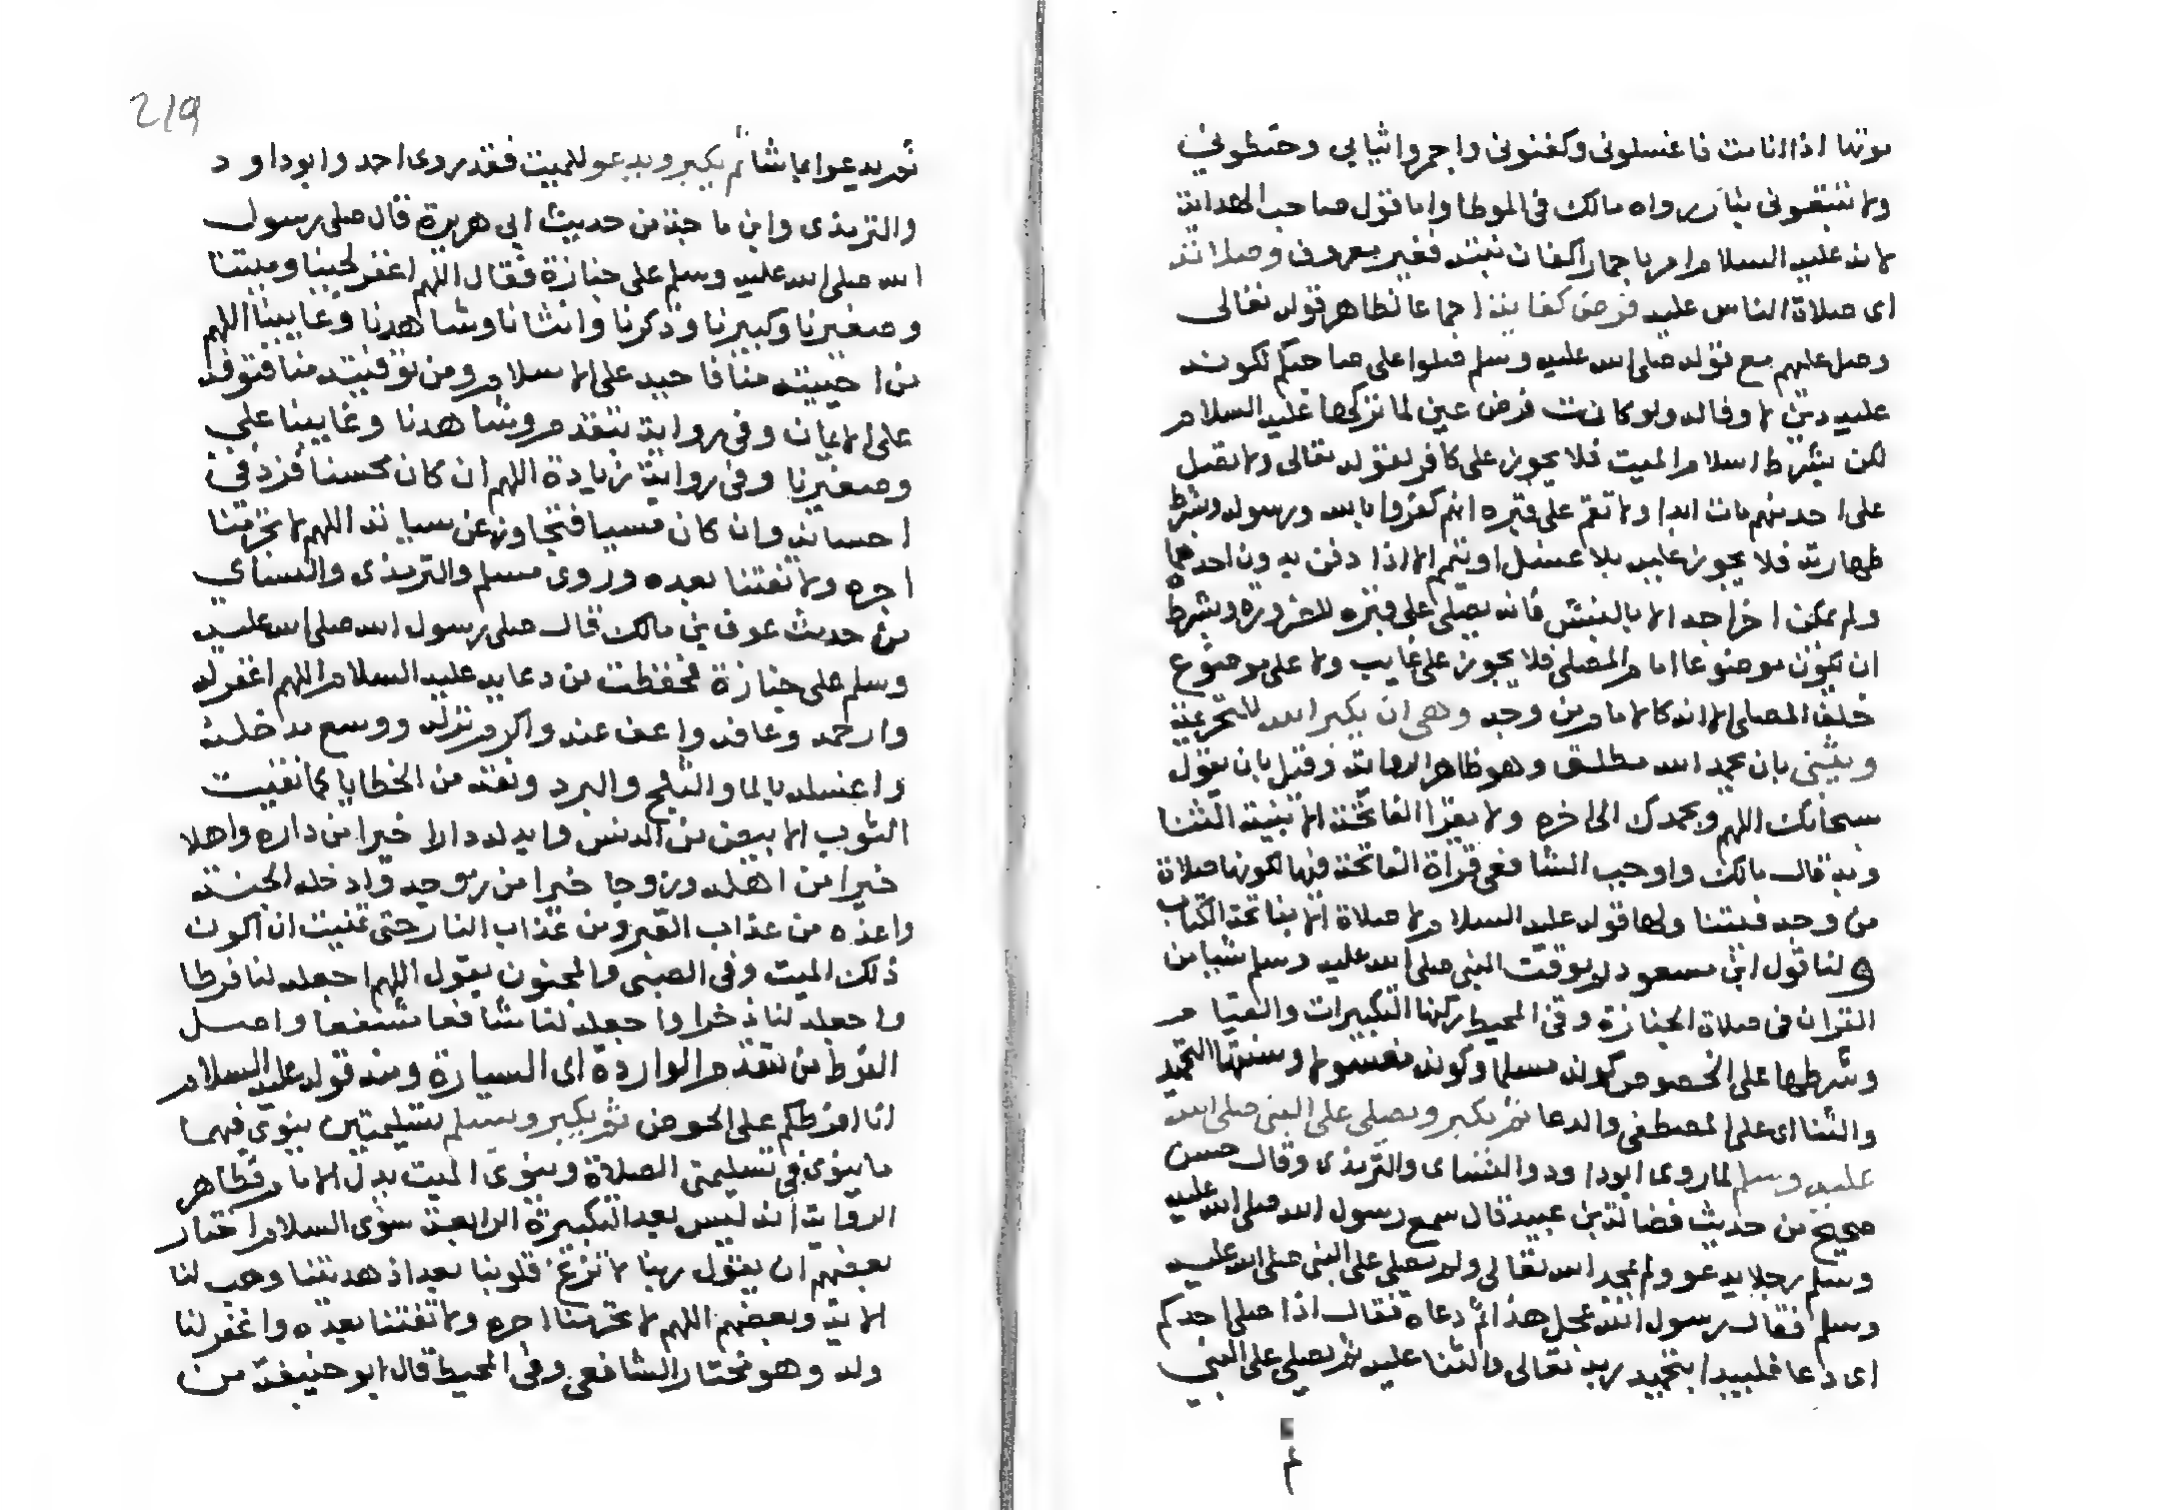 موتها اذا انا مت فاغسلونى وكفنونى واجمروا ثيابى وحنطونى
ولا تتبعونى بنار رواه مالك فى الموطا واما قول صاحب الهداية
لانه عليه السلام امر باجمار اكفان بنته فغير معروف وصلاته
اى صلاة الناس عليه فرض كفاية اجماعا لظاهر قوله تعالى
وصل عليهم مع قوله صلى الله عليه وسلم صلوا على صاحبكم لكونه
عليه دين لا وفا له ولو كانت فرض عين لما تركها عليه السلام
لكن بشرط اسلام الميت فلا يجوز على كافر لقوله تعالى ولا تصل
على احد منهم مات ابدا ولا تقم على قبره انهم كفروا بالله ورسوله وشرط
طهارته فلا يجوز عليه بلا غسل او تيمم الا اذا دفن بدون احدهما
ولم يمكن اخراجه الا بالنبش فانه يصلى على قبره للضرورة وبشرط
ان يكون موضوعا امام المصلى فلا يجوز على غايب ولا على موضوع
خلف المصلى لانه كالامام من وجه وهى ان يكبر الله للتحريمة
ويثنى بان يحمد الله مطلقا وهو ظاهر الرواية وقيل بان يقول
سبحانك اللهم وبحمدك الى اخره ولا يقرا الفاتحة الا بنية الثنا
وبه قال مالك واوجب الشافعى قراة الفاتحة فيها لكونها صلاة
من وجه فيتنا ولها قوله عليه السلام لا صلاة الا بفاتحة الكتاب
ولنا قول ابن مسعود لم يوقت النبى صلى الله عليه وسلم شيا من
القران فى صلاة الجنازة وفى المحيط ركنها التكبيرات والقيام
وشرطها على الخصوص كونه مسلما وكونه مغسولا وسننها التحميد
والثنا اى على المصطفى والدعا ثم يكبر ويصلى على النبى صلى الله
عليه وسلم لما روى ابو داود والنساى والترمذى وقال حسن
صحيح من حديث فضالة بن عبيد قال سمع رسول الله صلى الله عليه
وسلم رجلا يدعو ولم يمجد الله تعالى ولم يصلى على النبى صلى الله عليه
وسلم فقال رسول الله عجل هذا ثم دعاه فقال اذا صلى احدكم
اى دعا فليبدا بتحميد ربه تعالى والثنا عليه ثم يصلى على النبى
ثم
219
ثم يدعوا بما شا ثم يكبر ويدعو للميت فقد روى احمد وابو داود
والترمذى وابن ماجة من حديث ابى هريرة قال صلى رسول
الله صلى الله عليه وسلم على جنازة فقال اللهم اغفر لحينا وميتنا
وصغيرنا وكبيرنا وذكرنا وانثانا وشاهدنا وغايبنا اللهم
من احييته منا فاحيه على الاسلام ومن توفيته منا فتوفه
على الايمان وفى رواية بتقدم وشاهدنا وغايبنا على
وصغيرنا وفى رواية زيادة اللهم ان كان محسنا فزد فى
احسانه وان كان مسيا فتجاوز عن سياته اللهم لا تحرمنا
اجره ولا تفتنا بعده وروى مسلم والترمذى والنساى
من حديث عوف بن مالك قال صلى رسول الله صلى الله عليه
وسلم على جنازة فحفظت من دعايه عليه السلام اللهم اغفر له
وارحمه وعافه واعف عنه واكرم نزله ووسع مدخله
واغسله بالما والثلج والبرد ونقه من الخطايا كما نقيت
الثوب الابيض من الدنس وابدله دارا خيرا من داره واهلا
خيرا من اهله وزوجا خيرا من زوجه وادخله الجنة
واعذه من عذاب القبر ومن عذاب النار حتى تمنيت ان اكون
ذلك الميت وفى الصبى والمجنون يقول اللهم اجعله لنا فرطا
واجعله لنا ذخرا واجعله لنا شافعا مشفعا واصل
الفرط من تقدم الواردة اى السيارة ومنه قوله عليه السلام
انا افرطكم على الحوض ثم يكبر ويسلم تسليمتين ينوى فيهما
ما ينوى فى تسليمتى الصلاة وينوى الميت بدل الامام وظاهر
الرواية انه ليس بعد التكبيرة الرابعة سوى السلام اختار
بعضهم ان يقول ربنا لا تزغ قلوبنا بعد اذ هديتنا وهب لنا
الاية وبعضهم اللهم لا تحرمنا اجره ولا تفتنا بعده واغفر لنا
وله وهو مختار الشافعى وفى المحيط قال ابو حنيفة من